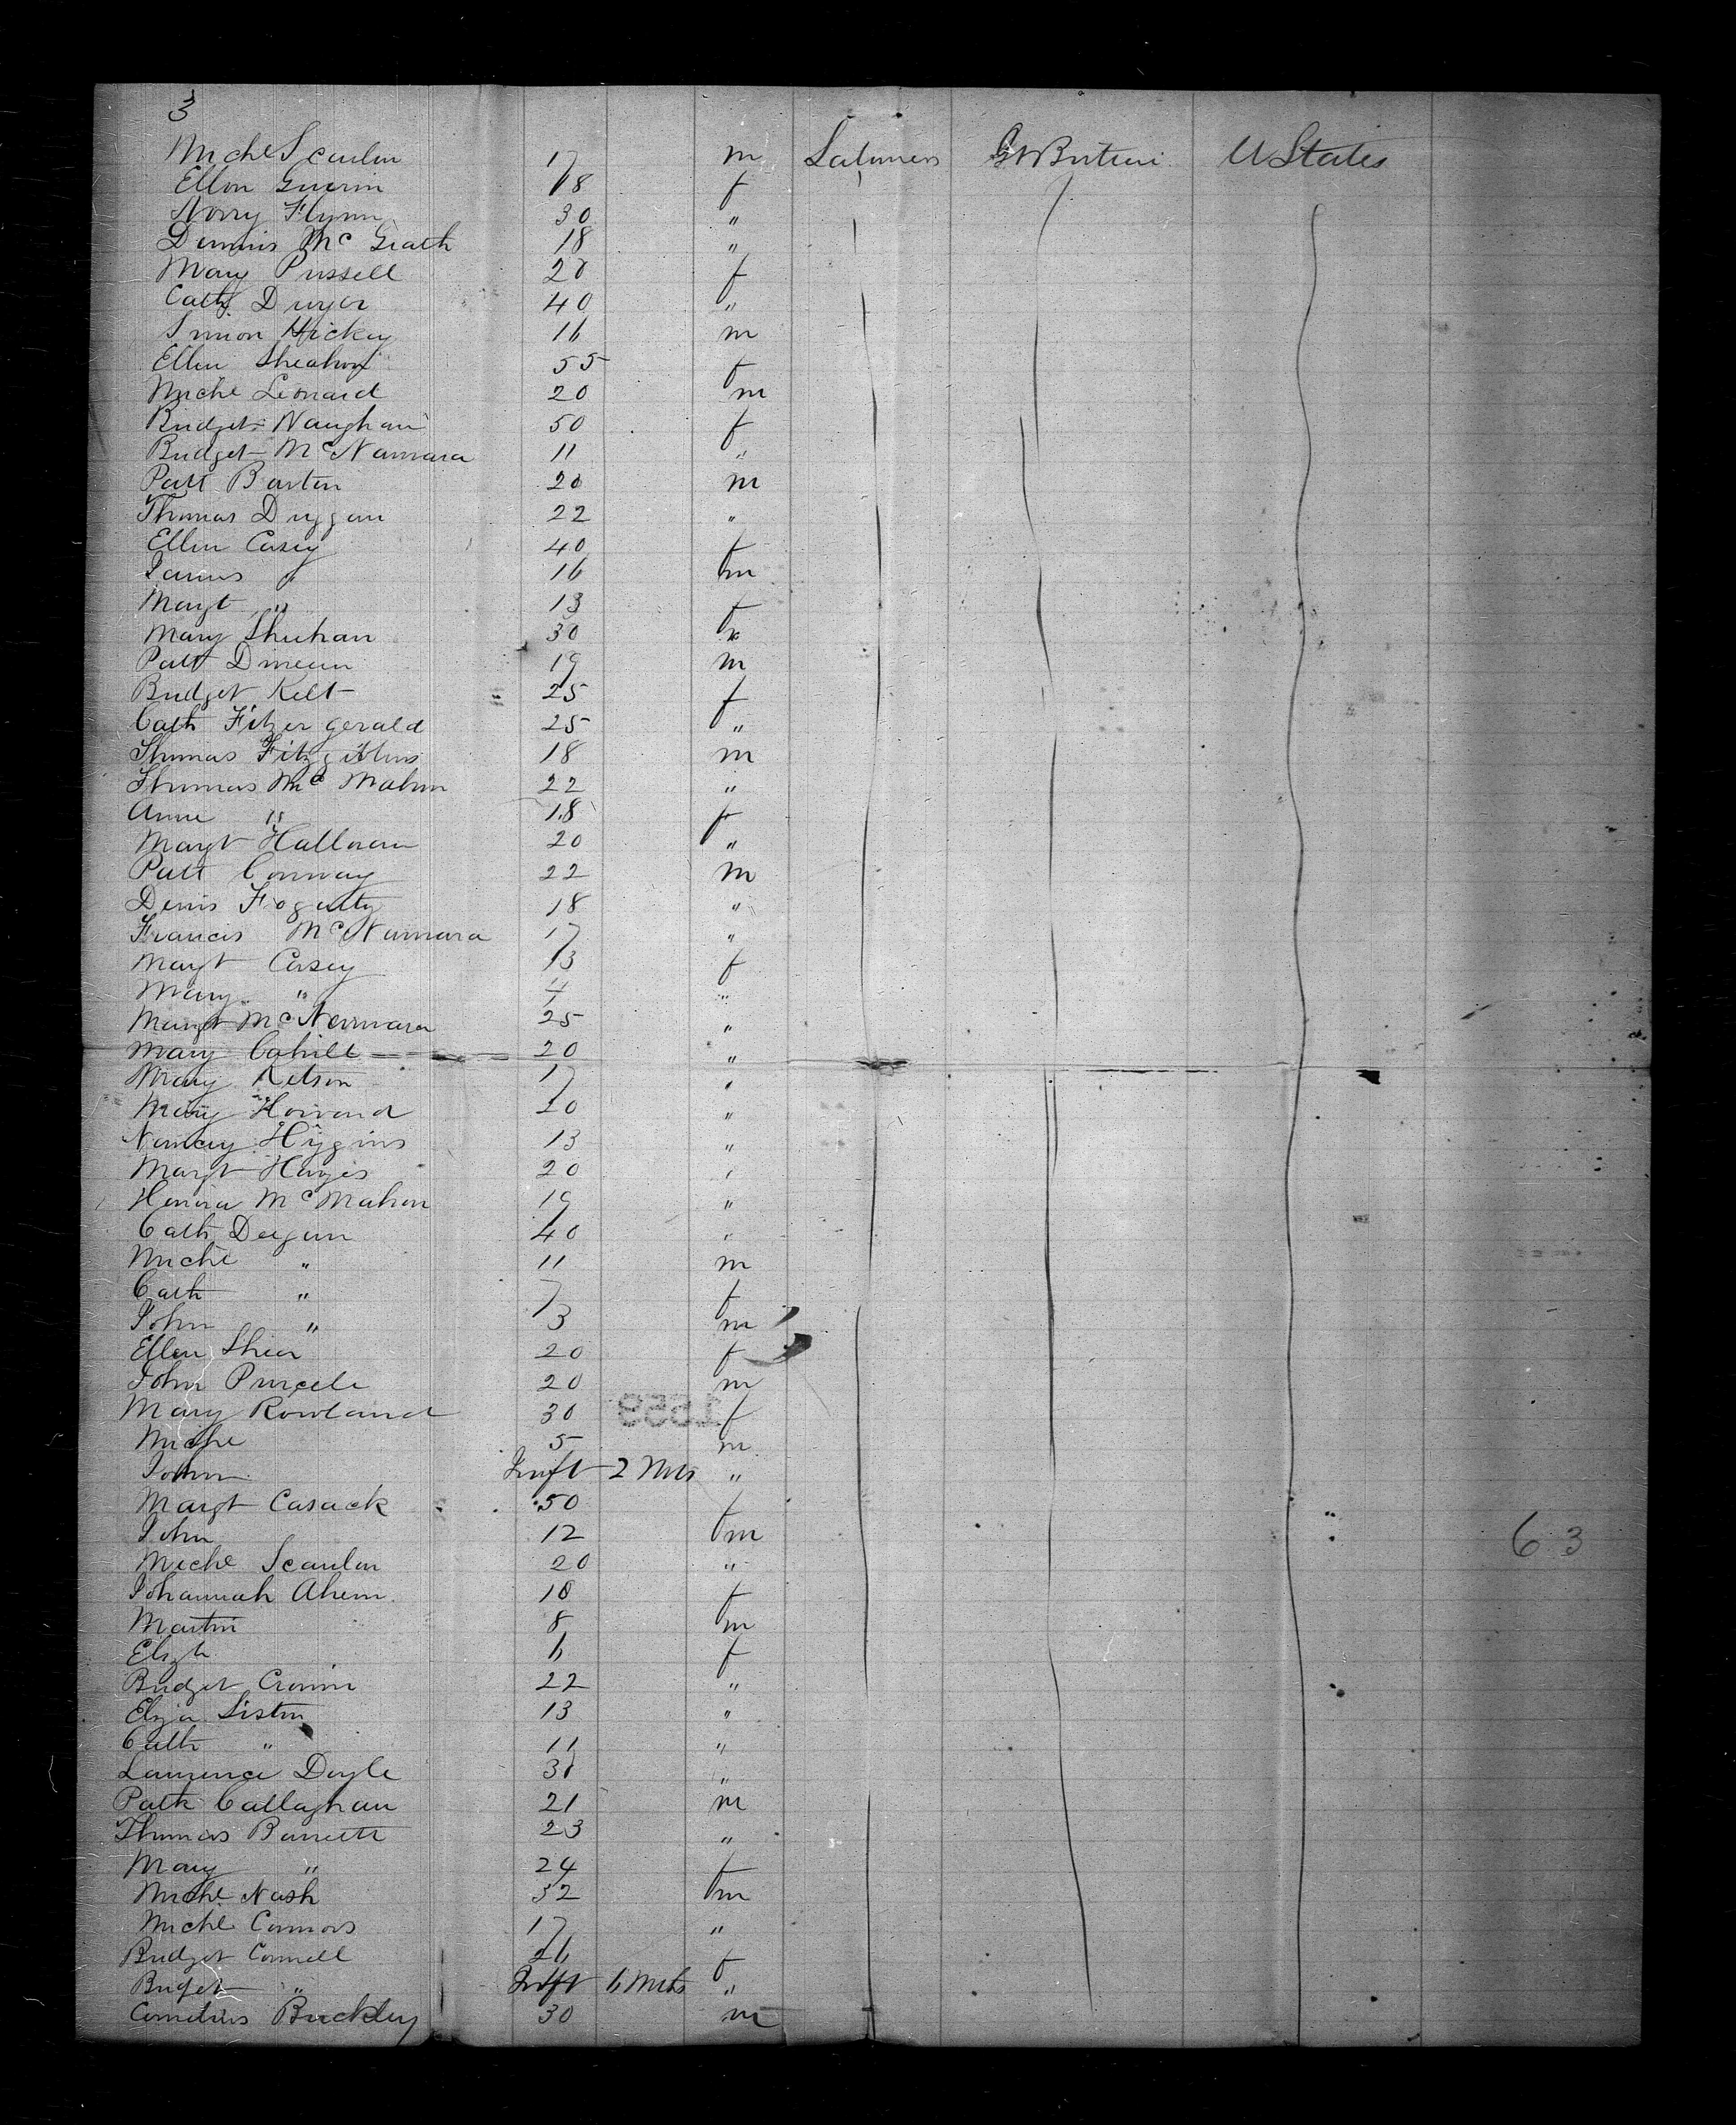 3
Michl Scanlon 17 m Laborers Gt Britain U States
Ellen Guerin 18 f
Norry Flynn 30 "
Dennis Mc Grath 18 "
Mary Pussell 20 f
Cath Dwyer 40 "
Simon Hickey 16 m
Ellen Sheahan 55 f
Michl Leonard 20 m
Bridget Naughan 50 f
Bridget McNamara 11 "
Patt Barton 20 m
Thomas Duggan 22 "
Ellen Casey 40 f
James " 16 m
Margt " 13 f
Mary Sheehan 30 "
Patt Dineen 19 m
Bridget Kelt 25 f
Cath Fitzer gerald 25 "
Thomas Fitzgibbons 18 m
Thomas Mc Mahon 22 "
Anne " 18 f
Margt Halloran 20 "
Patt Conway 22 m
Denis Fogerty 18 "
Francis McNamara 17 "
Margt Casey 13 f
Mary " 4 "
Margt McNamara 25 "
Mary Cahill 20 "
Mary Kelson 17 "
Mary Howard 20 "
Nancy Higgins 13 "
Margt Hayes 20 "
Honora McMahon 19 "
Cath Deegan 40 "
Michl " 11 m
Cath " 7 f
John " 3 m
Ellen Shea 20 f
John Purcell 20 m
Mary Rowland 30 f
Michl 5 m
John Inft 2 Mts "
Margt Casack 50 f
John 12 m 63
Michl Scanlon 20 "
Johannah Ahern 10 f
Martin 8 m
Elizh 6 f
Bridget Cronin 22 "
Eliza Liston 13 "
Cath " 11 "
Laurence Doyle 30 "
Patk Callaghan 21 m
Thomas Barrett 23 "
Mary " 24 f
Michl Nash 32 m
Michl Connors 17 "
Bridget Connell 26 f
Bridget " Inft 6 Mths "
Cornelius Buckley 30 m